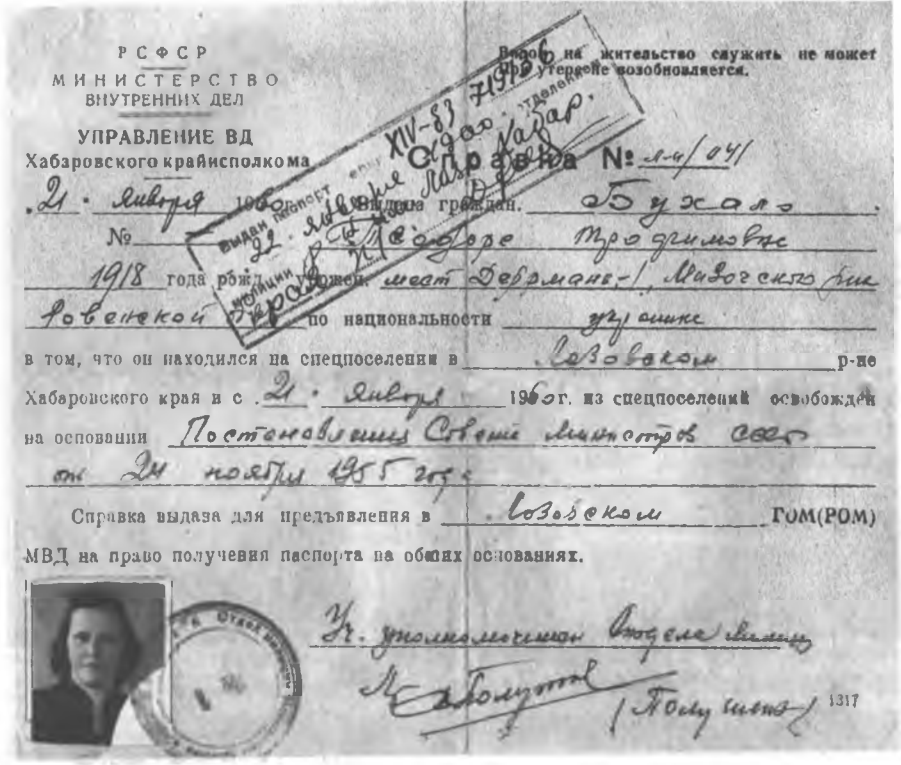 РСФСР
МИНИСТЕРСТВО
ВНУТРЕННИХ ДЕЛ
УПРАВЛЕНИЕ ВД
Хабаровского крайисполкома
на жительство служить не может
При утере не возобновляется.
ВЫДАН ПАСПОРТ
XIV-ВЗ
22. января
Справка № /041
21. Января 1960г. Выдана граждан. Бухало
№ Теодоре Трофимовне
1918 года рожд. урожен. мест Дермань-1, Мизочского
Ровенской по национальности украинке
в том, что он находился на спецпоселении в Лазовском р-не
Хабаровского края и с 21. Января 1960г. из спецпоселения освобожден
на основании Постановления Совета Министров СССР
от 24 ноября 1955 года
Справка выдана для предъявления в Лазовском ГОМ(РОМ)
МВД на право получения паспорта на общих основаниях.
Уч. уполномоченный Отдела милиции
1317